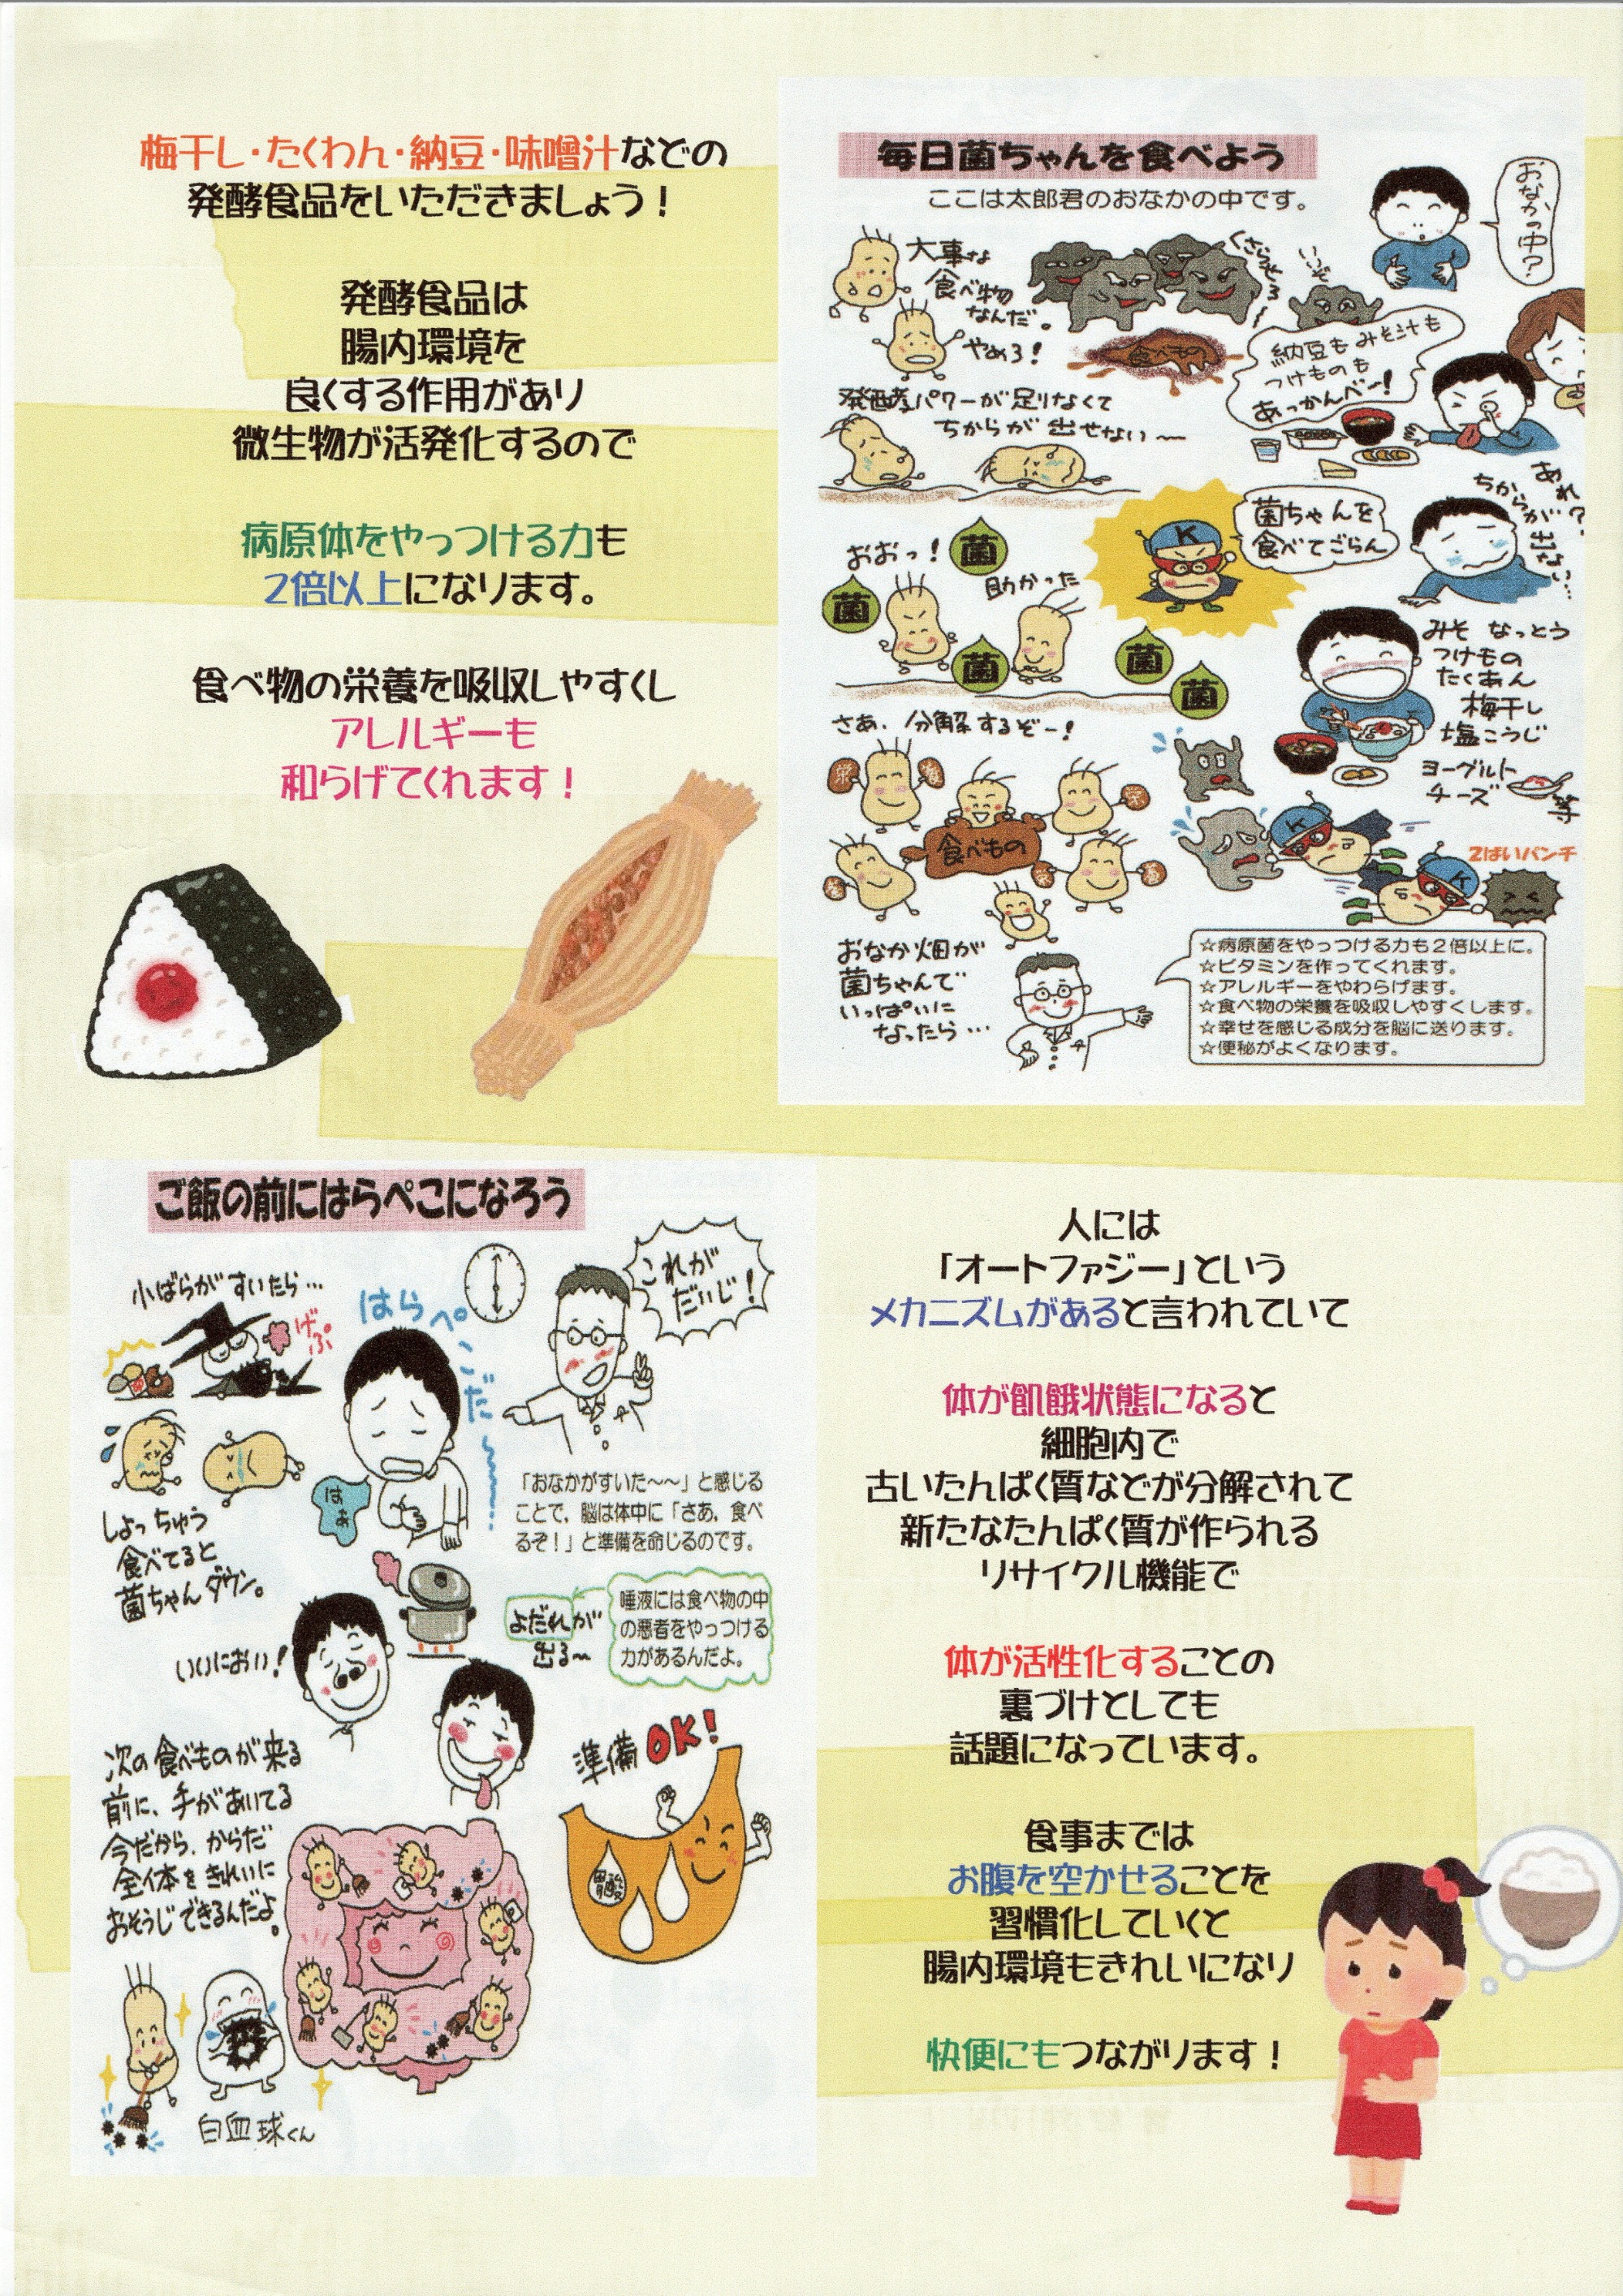 梅干し・たくわん・納豆・味噌汁などの
発酵食品をいただきましょう！
発酵食品は
腸内環境を
良くする作用があり
微生物が活発化するので
病原体をやっつける力も
2倍以上になります。
食べ物の栄養を吸収しやすくし
アレルギーも
和らげてくれます！
毎日菌ちゃんを食べよう
ここは太郎君のおなかの中です。
おなかの中？
大事な
食べ物
なんだ。
やめろ！
くさらせろ
いっぞ
食べもの
納豆もみそ汁も
つけものも
あっかんべー！
発酵パワーが足りなくて
ちからが出せない〜
あれ？
ちからが
出ない…
菌ちゃんを
食べてごらん
K
おおっ！
助かった
菌
菌
菌
菌
菌
みそ なっとう
つけもの
たくあん
梅干し
塩こうじ
ヨーグルト
チーズ
等
さあ、分解するぞー！
栄
養
栄
食べもの
養
栄
養
K
K
2ばいパンチ
おなか畑が
菌ちゃんで
いっぱいに
なったら…
☆病原菌をやっつける力も2倍以上に。
☆ビタミンを作ってくれます。
☆アレルギーをやわらげます。
☆食べ物の栄養を吸収しやすくします。
☆幸せを感じる成分を脳に送ります。
☆便秘がよくなります。
ご飯の前にはらぺこになろう
小ばらがすいたら…
げぷ
はらぺこだ〜
これが
だいじ！
しょっちゅう
食べてると
菌ちゃんダウン。
はぁ
「おなかがすいた〜〜」と感じる
ことで、脳は体中に「さあ、食べ
るぞ！」と準備を命じるのです。
いいにおい！
よだれが
出る〜
唾液には食べ物の中
の悪者をやっつける
力があるんだよ。
準備OK！
胃酸
次の食べものが来る
前に、手があいてる
今だから、からだ
全体をきれいに
おそうじできるんだよ。
白血球くん
人には
「オートファジー」という
メカニズムがあると言われていて
体が飢餓状態になると
細胞内で
古いたんぱく質などが分解されて
新たなたんぱく質が作られる
リサイクル機能で
体が活性化することの
裏づけとしても
話題になっています。
食事までは
お腹を空かせることを
習慣化していくと
腸内環境もきれいになり
快便にもつながります！